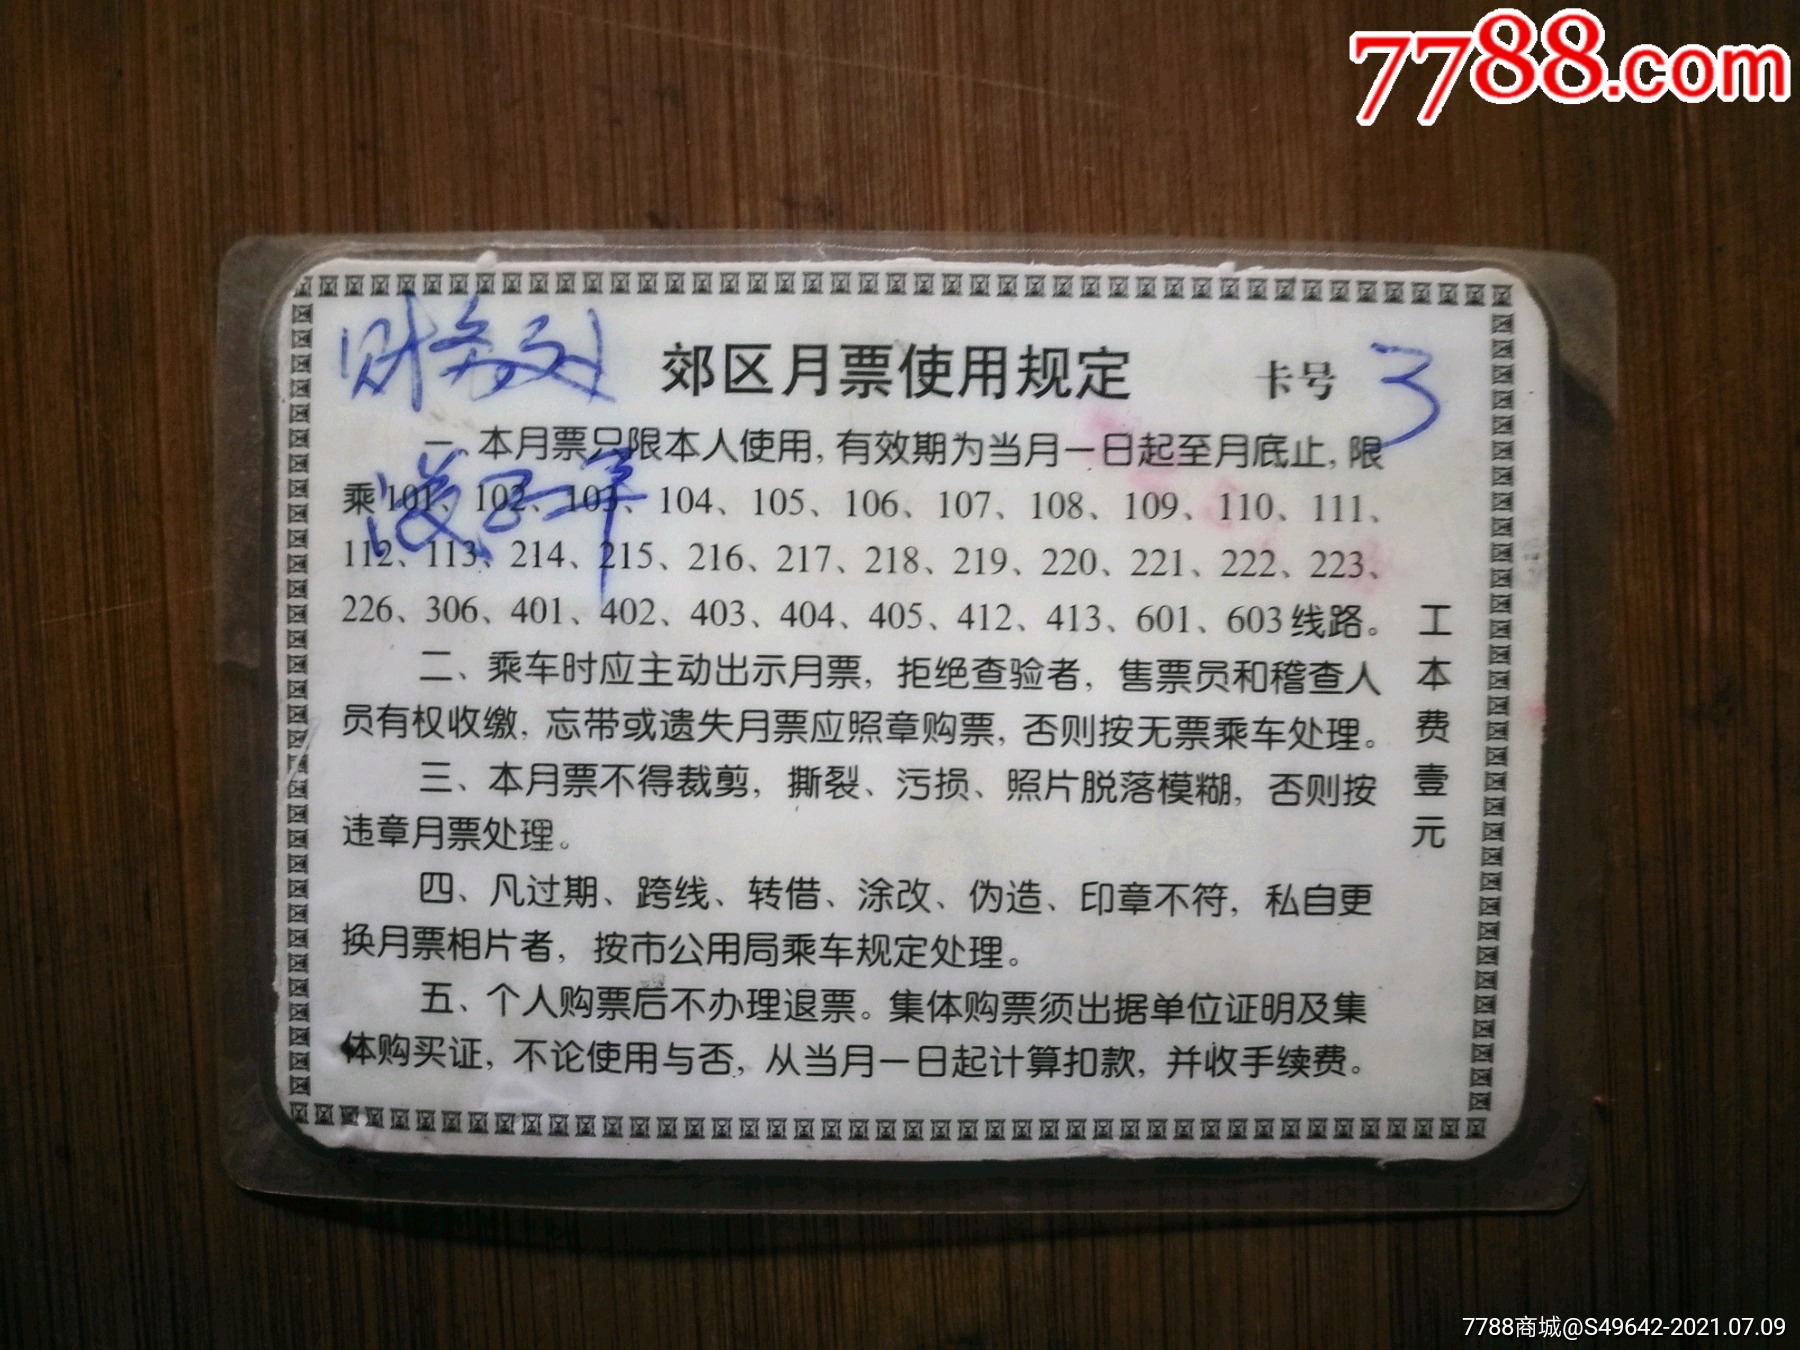 7788.com
财务刘
郊区月票使用规定 卡号 3
一、本月票只限本人使用，有效期为当月一日起至月底止，限
乘101、102、103、104、105、106、107、108、109、110、111、
112、113、214、215、216、217、218、219、220、221、222、223、
226、306、401、402、403、404、405、412、413、601、603线路。
二、乘车时应主动出示月票，拒绝查验者，售票员和稽查人
员有权收缴，忘带或遗失月票应照章购票，否则按无票乘车处理。
三、本月票不得裁剪，撕裂、污损、照片脱落模糊，否则按
违章月票处理。
四、凡过期、跨线、转借、涂改、伪造、印章不符，私自更
换月票相片者，按市公用局乘车规定处理。
五、个人购票后不办理退票。集体购票须出据单位证明及集
体购买证，不论使用与否，从当月一日起计算扣款，并收手续费。
工本费壹元
7788商城@S49642-2021.07.09